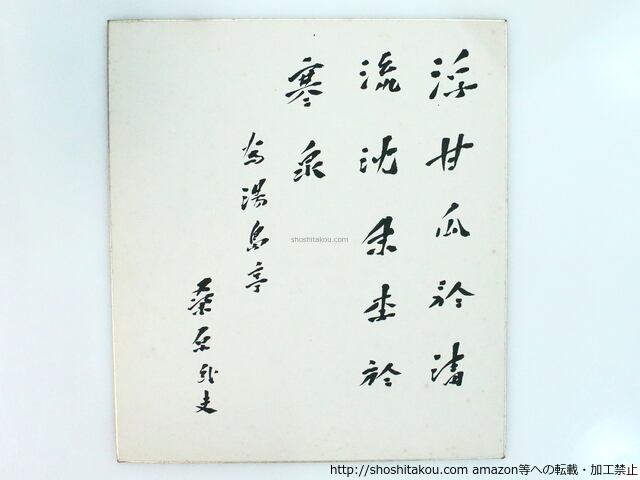 浮甘瓜於清
流沈朱李於
寒泉
為湯島亭
桑原武夫
shoshitakou.com
http://shoshitakou.com amazon等への転載・加工禁止